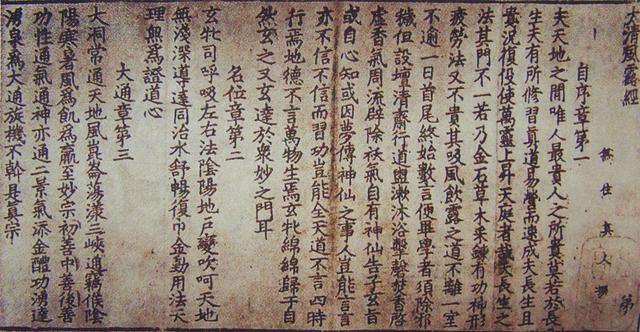 太清風露經
無住真人撰
自序章第一
夫天地之間唯人最貴人之所貴莫若於長
生夫有所修習真道易營而速成夫長生且
貴況復役使萬靈上昇天庭者哉夫長生之
法其門不一若乃金石草木采鍊有功神形
疲勞法又不貴其吸風飲露之道不離一室
不逾一日首尾終始數言便畢學者須除邪
穢但設壇清齋行道盥漱沐浴聲磬焚香啓
虛香氣周流辟除袄氣自有神仙告子玄旨
或自心知或因夢傳神仙之事人豈能言言
亦不信不信而習功豈能全天道不言四時
行焉地德不言萬物生焉玄牝綿綿歸于自
然玄之又玄達於衆妙之門耳
名位章第二
玄牝司呼吸左右法陰陽地戶轡吹呵天地
無淺深道算達同治水舒暢復巾金勤用法天
理無為證道心
大通章第三
大洞常通天地風崑崙蕩漾三峽通竊候陰
陽寒暑風為飢為羸至妙宗初善中善後善
功性通氣通神亦通二景氣添金醴功湧達
湧泉為大通旋機不幹是真宗